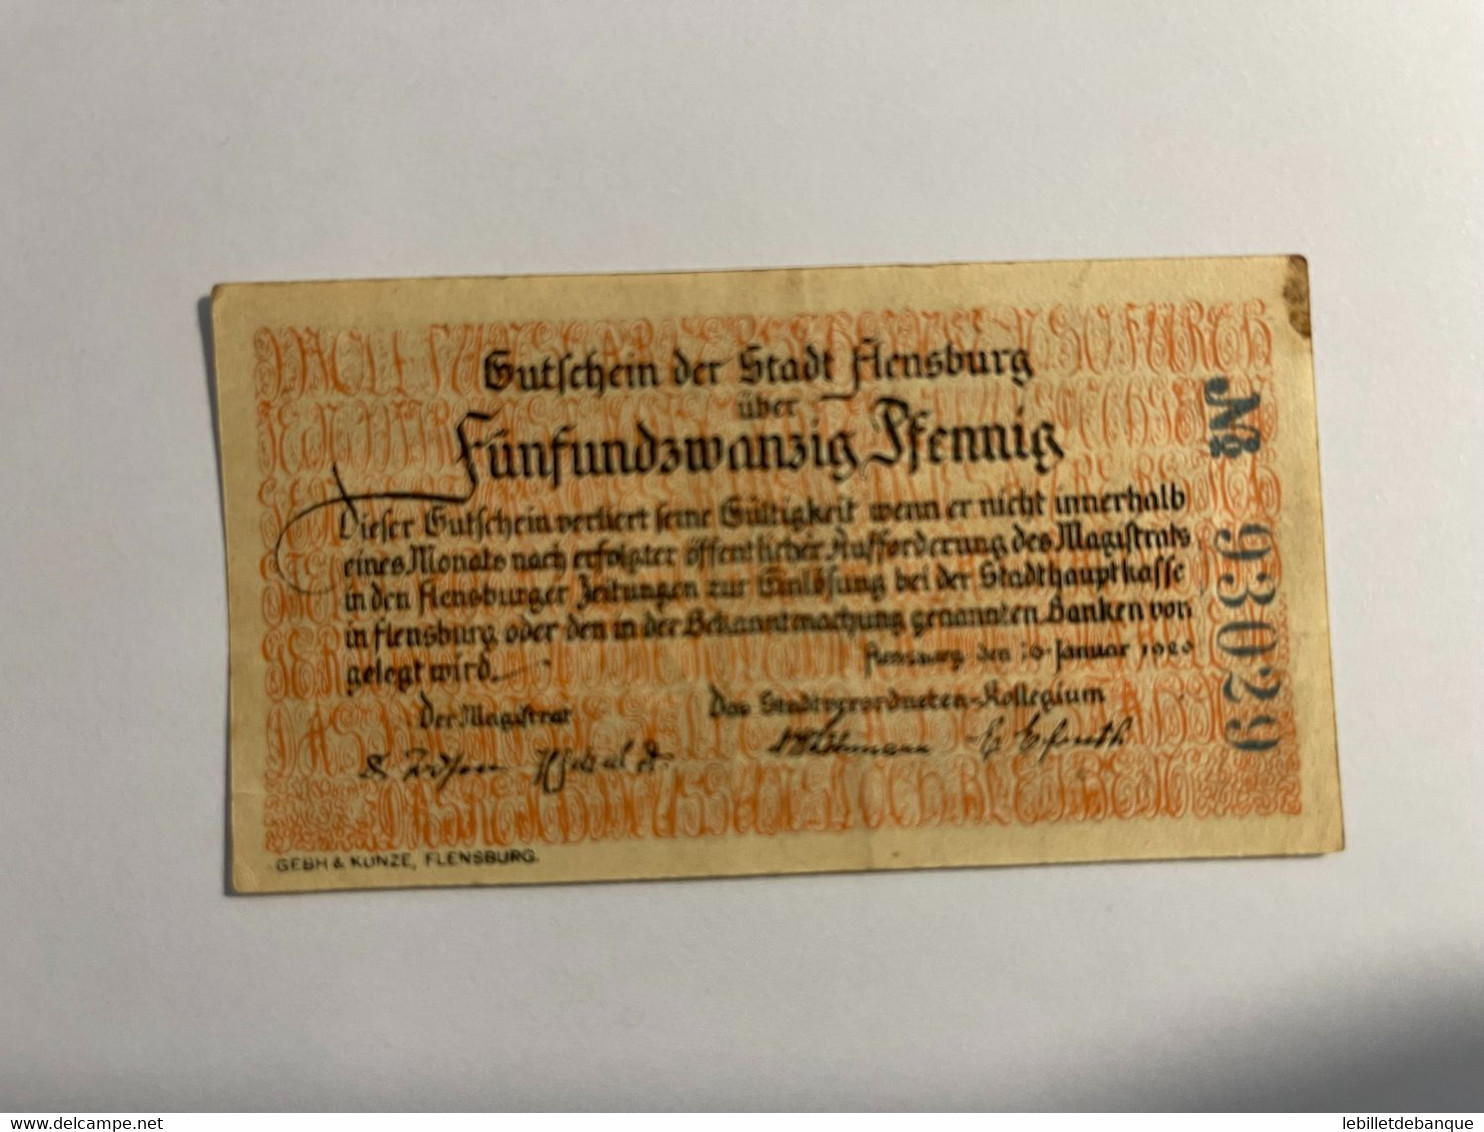 Gutschein der Stadt Flensburg
über
Fünfundzwanzig Pfennig
Dieser Gutschein verliert seine Gültigkeit wenn er nicht innerhalb
eines Monats nach erfolgter öffentlicher Aufforderung des Magistrats
in den Flensburger Zeitungen zur Einlösung bei der Stadthauptkasse
in Flensburg oder den in der Bekanntmachung genannten Banken vor-
gelegt wird.
Flensburg, den Januar 1920
Der Magistrat
Das Stadtverordneten-Kollegium
№ 93029
GEBH & KUNZE, FLENSBURG.
www.delcampe.net
lebilletdebanque